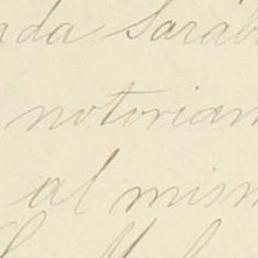 ada Sarab
notoriam
al mism